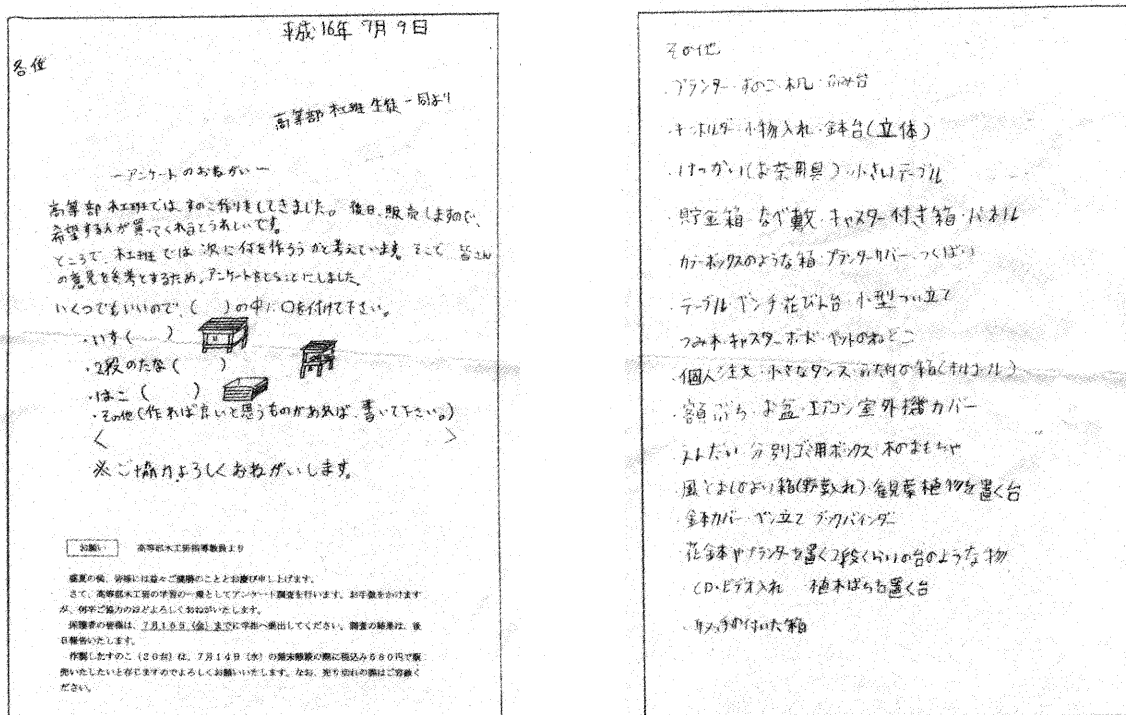 平成16年 7月 9日
各位
高等部 木工班 生徒一同より
ーアンケートのおねがいー
高等部 木工班では、すのこ作りをしてきました。後日、販売しますので、
希望する人が買ってくれるとうれしいです。
ところで、木工班では次に何を作ろうかと考えています。そこで皆さん
の意見を参考とするため、アンケートをとることにしました。
いくつでもいいので、(　)の中に○を付けて下さい。
・いす(　)
・2段のたな(　)
・はこ(　)
・その他(作れば良いと思うものがあれば、書いて下さい。)
〈　〉
※ご協力よろしくおねがいします。
お願い 高等部木工班指導教員より
盛夏の候、皆様には益々ご健勝のこととお慶び申し上げます。
さて、高等部木工班の学習の一環としてアンケート調査を行います。お手数をかけます
が、何卒ご協力のほどよろしくおねがいたします。
保護者の皆様は、7月16日(金)までに学担へ提出してください。調査の結果は、後
日報告いたします。
作製したすのこ(20台)は、7月14日(水)の期末懇談の際に税込み580円で販
売いたしたいと存じますのでよろしくお願いいたします。なお、売り切れの際はご容赦く
ださい。
その他
・プランター・すのこ・机・ふみ台
・キーホルダー・小物入れ・鉢台(立体)
・けっかい(お茶用具)・小さいテーブル
・貯金箱・なべ敷・キャスター付き箱・パネル
カラーボックスのような箱・プランターカバー・つくばい
・テーブル・ベンチ・花びん台・小型つい立て
つみ木・キャスターボード・ペットのねどこ
・個人注文・小さなタンス・ふた付の箱(オルゴール)
・額ぶち・お盆・エアコン室外機カバー
えんだい・分別ゴミ用ボックス・木のおもちゃ
風とおしのよい箱(野菜入れ)・観葉植物を置く台
・鉢カバー・ペン立て・ブックバインダー
・花鉢やプランターを置く2段くらいの台のような物
・CD・ビデオ入れ 植木ばちを置く台
・の付いた箱